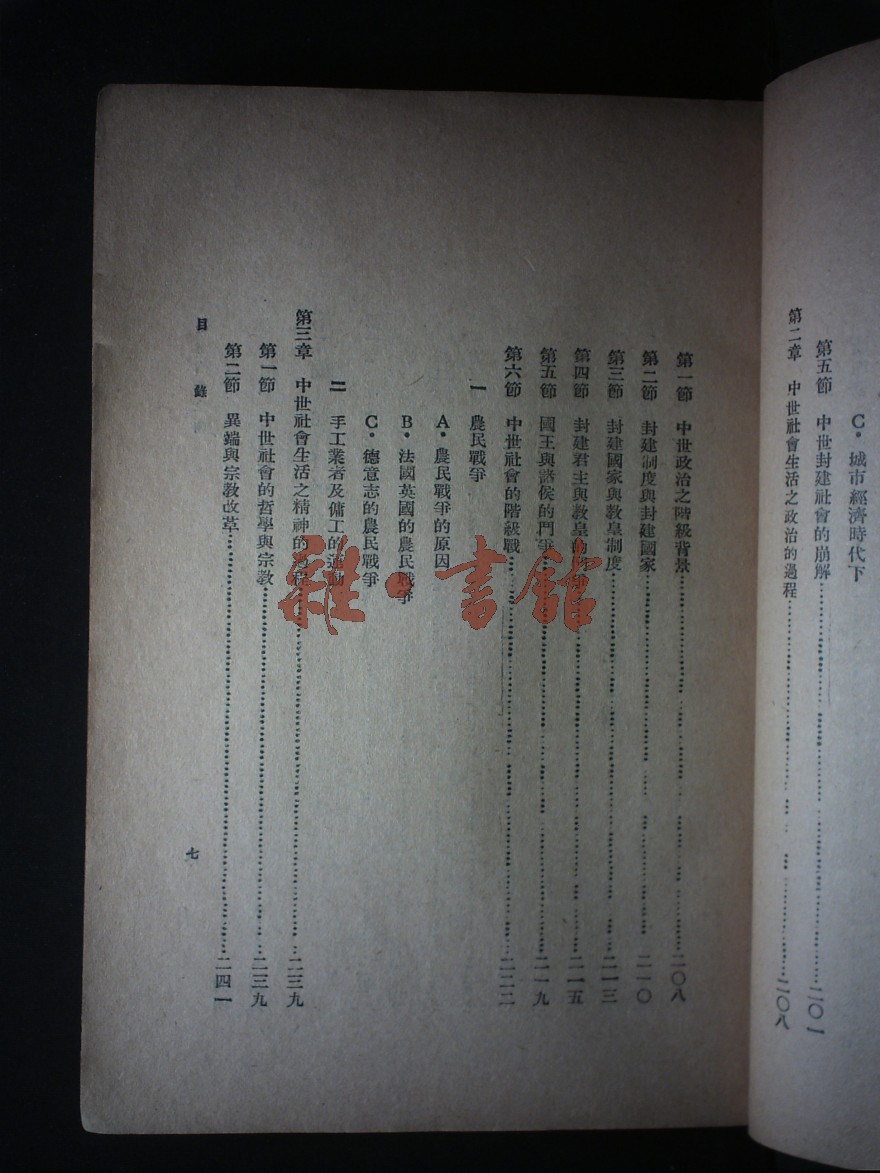 C．城市經濟時代下
第五節　中世封建社會的崩解……二〇一
第二章　中世社會生活之政治的過程……二〇八
第一節　中世政治之階級背景……二〇八
第二節　封建制度與封建國家……二一〇
第三節　封建國家與教皇制度……二一三
第四節　封建君主與教皇的……二一五
第五節　國王與諸侯的鬥爭……二一九
第六節　中世社會的階級戰……二二二
一　農民戰爭
A．農民戰爭的原因
B．法國英國的農民戰爭
C．德意志的農民戰爭
二　手工業者及傭工的運動
第三章　中世社會生活之精神的過程……二三九
第一節　中世社會的哲學與宗教……二三九
第二節　異端與宗教改革……二四一
目錄
七
雜·書館